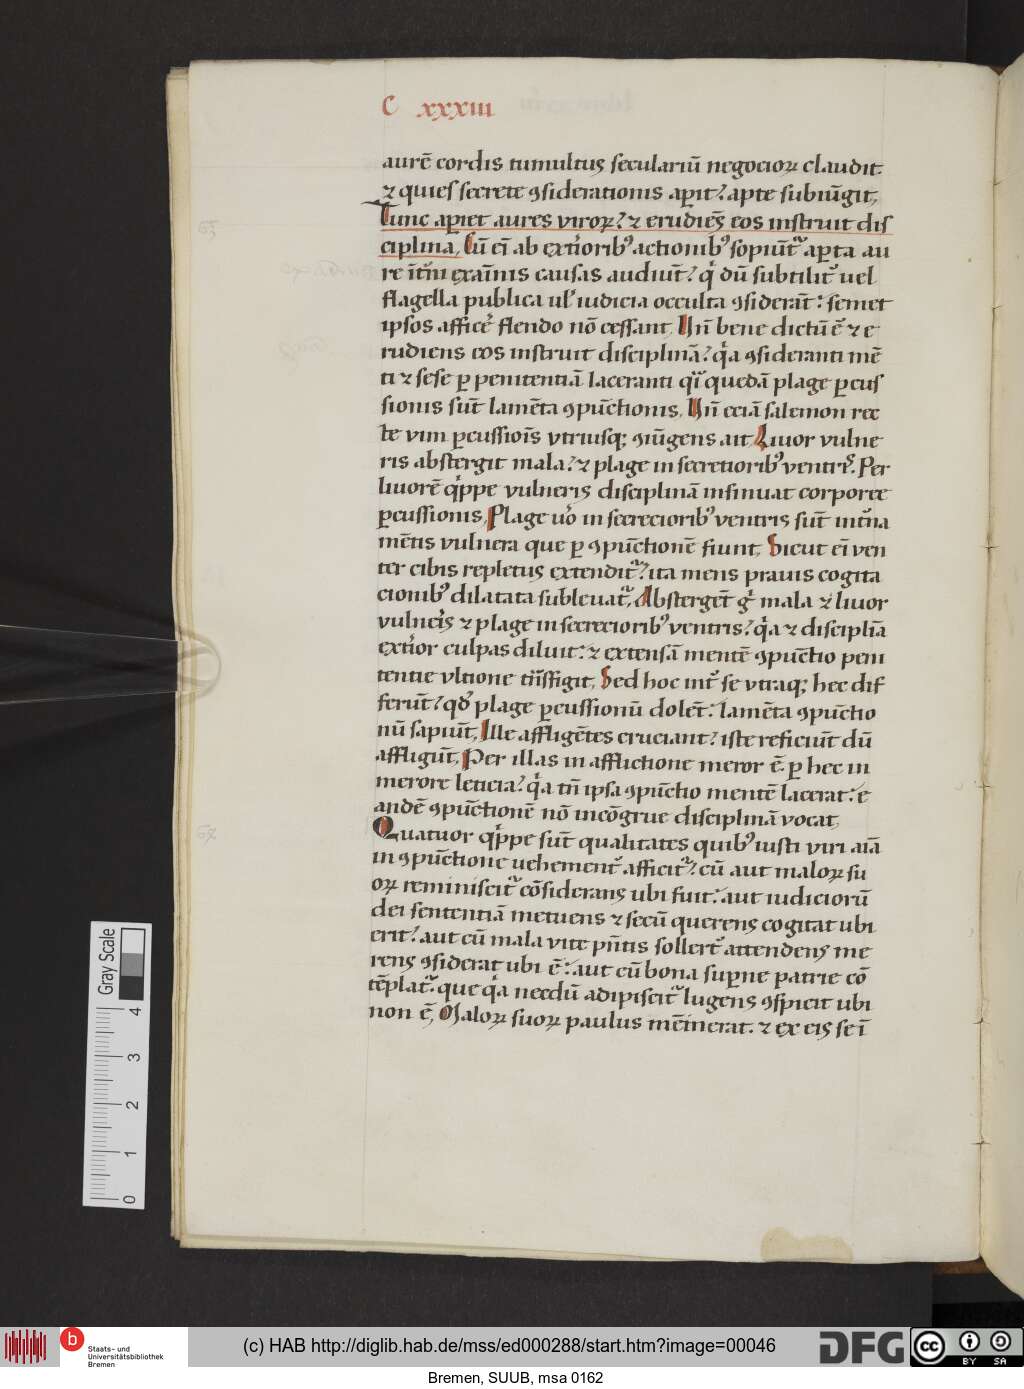 C xxxiii
aurē cordis tumultus seculariū negocioꝝ claudit.
⁊ quies secrete ꝯsiderationis aꝑit? apte subiūgit,
Tunc aꝑiet aures viroꝝ? ⁊ erudiēs eos instruit dis
ciplina, Cū ei̅ ab exteͥoribꝰ actionibꝰ sopiūt᷑ aꝑta au
re īt᷑ni exaīnis causas audiūt? qͥ dū subtilit᷑ uel
flagella publica ul̕ iudicia occulta ꝯsiderāt: semet
ipsos affice᷑ flendo nō cessant, Un̄ bene dictū ē᷑ ⁊ e
rudiens eos instruit disciplinā? qͥa ꝯsideranti mē
ti ⁊ sese ꝑ penitentiā laceranti qͣi quedā plage ꝑcus
sionis sūt lamēta ꝯpūctionis, Un̄ eciā salemon rec
te vim ꝑcussiois̄ vtriusqꝫ ꝯiūgens ait Liuor vulne
ris abstergit mala? ⁊ plage in secretioribꝰ ventrꝭ. Per
liuorē qͥppe vulneris disciplinā insinuat corporee
ꝑcussionis, Plage uͦo in secrecioribꝰ ventris sūt int᷑na
mētis vulnera que ꝑ ꝯpūctionē fiunt, Sicut ei̅ ven
ter cibis repletus extendit᷑? ita mens prauis cogita
cionibꝰ dilatata subleuat᷑, Abstergēt gͥ mala ⁊ liuor
vulneꝭ ⁊ plage in secrecioribꝰ ventris? qͥa ⁊ disciplīa
exteͥor culpas diluit: ⁊ extensā mentē ꝯpūctio peni
tentie vltione tͣnsfigit, Sed hoc int᷑ se vtraqꝫ hec dif
ferūt? qd̕ plage ꝑcussionū dolēt: lamēta ꝯpūctio
nū sapiūt, Ille affligētes cruciant? iste reficiūt dū
affligūt, Per illas in afflictione meror ē. ꝑ hec in
merore leticia? qͥa tn̄ ipsa ꝯpūctio mentē lacerat: e
andē ꝯpūctionē nō incōgrue disciplinā vocat,
Quatuor qͥppe sūt qualitates quibꝰ iusti viri aiā
in ꝯpūctione uehement᷑ afficit᷑? cū aut maloꝝ su
oꝝ reminiscit᷑ cōsiderans ubi fuit: aut iudiciorū
dei sententiā metuens ⁊ secū querens cogitat ubi
erit? aut cū mala vite pn̄tis sollert᷑ attendens me
rens ꝯsiderat ubi ē: aut cū bona suꝑne patrie cō
tēplat᷑: que qͥa necdū adipiscit᷑ lugens ꝯspicit ubi
non ē, Maloꝝ suoꝝ paulus mēinerat. ⁊ ex eis se ī
Gray Scale
0 1 2 3 4
b Staats- und
Universitätsbibliothek
Bremen
(c) HAB http://diglib.hab.de/mss/ed000288/start.htm?image=00046
DFG
cc BY SA
Bremen, SUUB, msa 0162